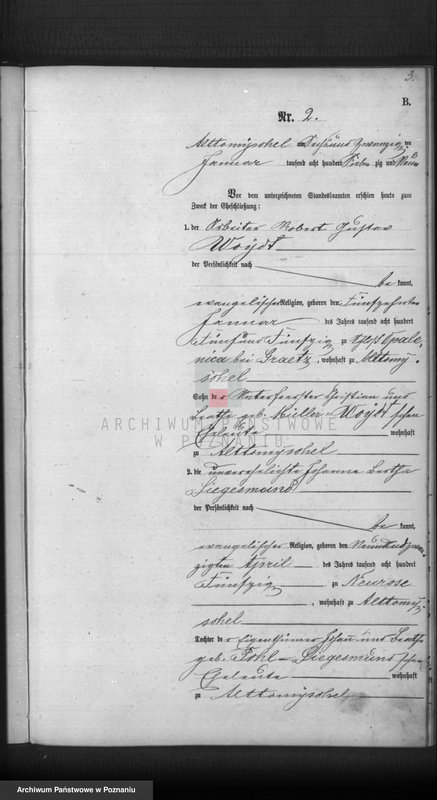 3.
B.
Nr. 2.
Alttomyschel am Sechsundzwanzigten
Januar tausend acht hundert Sieben zig und Neun
Vor dem unterzeichneten Standesbeamten erschien heute zum
Zweck der Eheschließung:
1. der Arbeiter Robert Gustav
Woydt
der Persönlichkeit nach
be kannt,
evangelischer Religion, geboren den Fünfzehnten
Januar des Jahres tausend acht hundert
Fünfund Fünfzig zu Schloß Opale,
nica bei Graetz, wohnhaft zu Alttomy,
schel
Sohn des Unterfoerster Christian und
Bertha geb. Müller Woydt schen
Eheleute wohnhaft
zu Alttomyschel
2. die unverehelichte Johanna Bertha
Siegesmund
der Persönlichkeit nach
be kannt,
evangelischer Religion, geboren den Neunundzwan,
zigten April des Jahres tausend acht hundert
Fünfzig zu Neurose
, wohnhaft zu Alttomy,
schel
Tochter der Eigenthümer und
geb. Pohl Siegesmund schen
Eheleute wohnhaft
zu Alttomyschel
ARCHIWUM PAŃSTWOWE
W POZNANIU
Archiwum Państwowe w Poznaniu